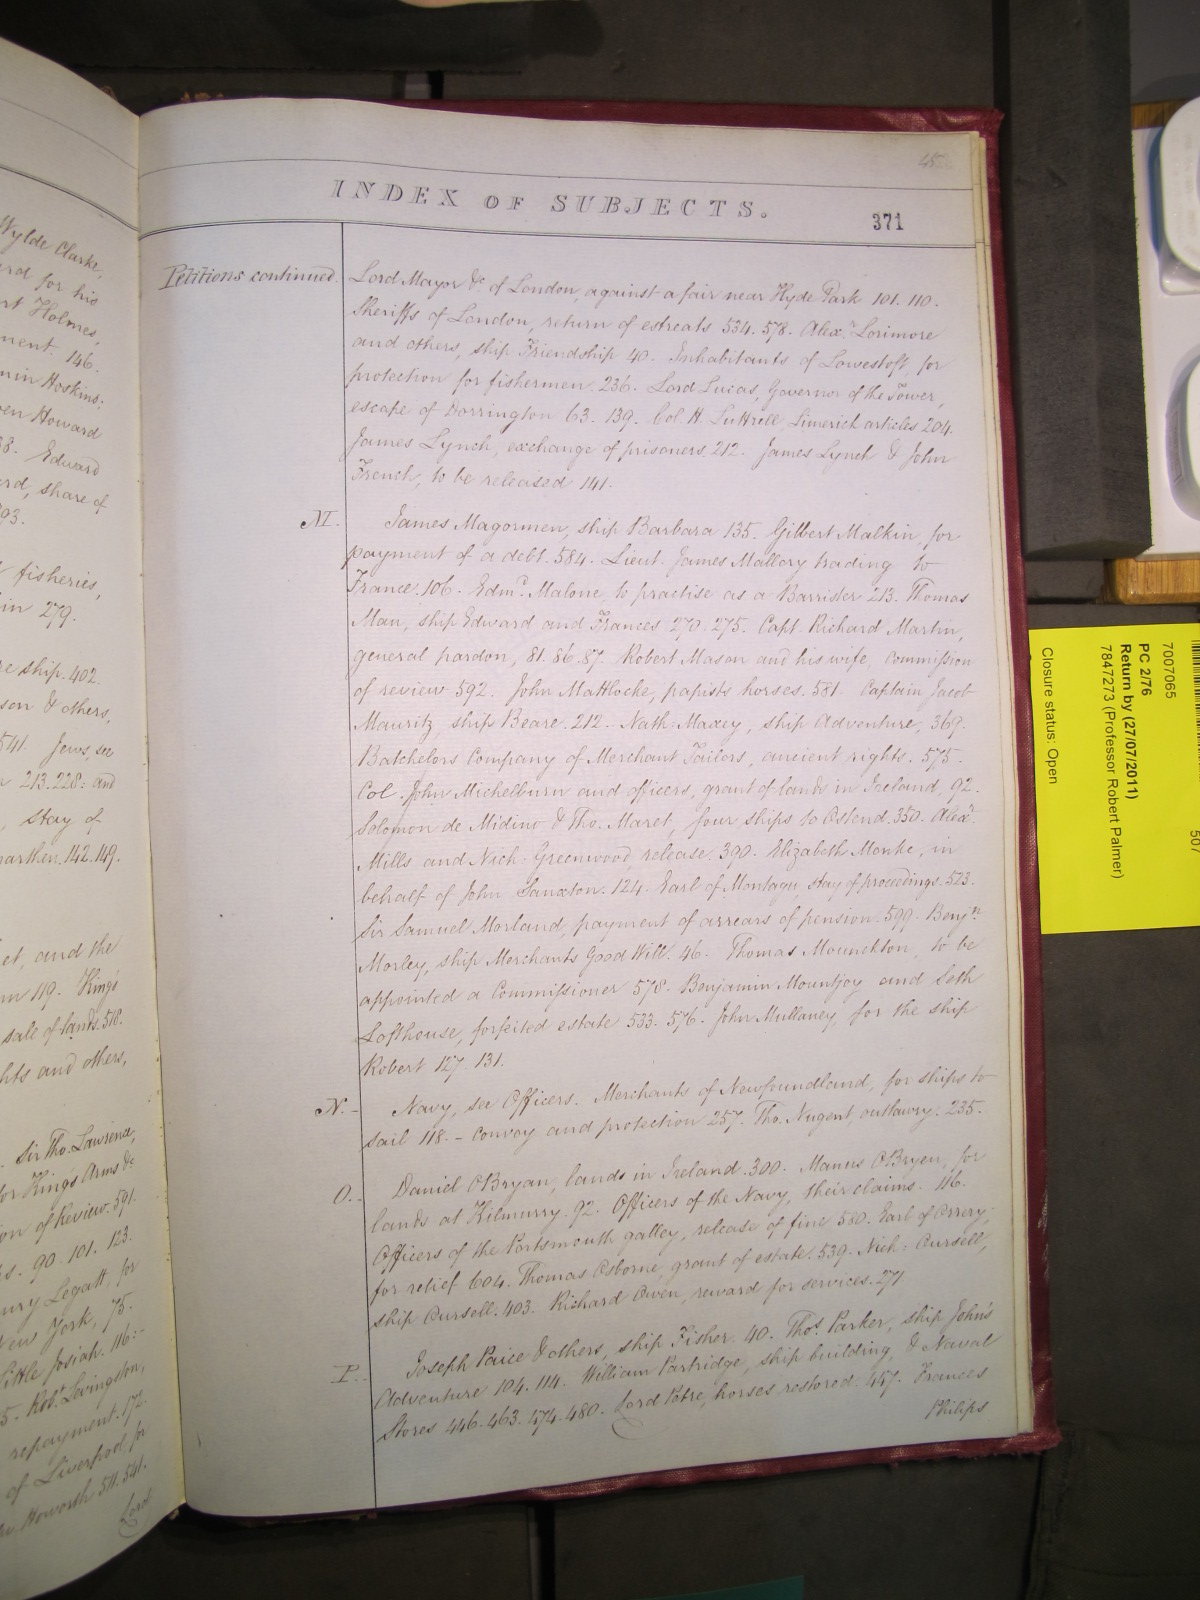 INDEX OF SUBJECTS.
371
Petitions continued.
Lord Mayor &c of London, against a fair near Hyde Park 101. 110.
Sheriffs of London, return of estreats 534. 578. Alexr. Lorimore
and others, ship Friendship 40. Inhabitants of Lowestoft, for
protection for fishermen. 236. Lord Lucas, Governor of the Tower,
escape of Dorrington 63. 139. Col. H. Luttrell Limerick articles 204.
James Lynch, exchange of prisoners. 212. James Lynch & John
French, to be released 141.
M. James Magormen, ship Barbara 135. Gilbert Malkin, for
payment of a debt. 584. Lieut. James Mallory trading to
France. 106. Edmd. Malone, to practise as a Barrister 213. Thomas
Man, ship Edward and Frances 270. 275. Capt. Richard Martin,
general pardon, 81. 86. 87. Robert Mason and his wife, commission
of review 592. John Mattlocke, papists horses. 581. Captain Jacob
Mauritz, ship Beare. 212. Nath. Maxey, ship Adventure, 369.
Batchelors Company of Merchant Tailors, ancient rights. 575.
Col. John Michelburn and officers, grant of lands in Ireland, 92.
Solomon de Midino & Tho. Maret, four ships to Ostend. 350. Alexr.
Mills and Nich. Greenwood release. 390. Elizabeth Monke, in
behalf of John Sanxton. 124. Earl of Montagu, stay of proceedings. 523.
Sir Samuel Morland, payment of arrears of pension. 599. Benjn.
Morley, ship Merchants Good Will. 46. Thomas Mounckton, to be
appointed a Commissioner 578. Benjamin Mountjoy and Seth
Lofthouse, forfeited estate 533. 576. John Mullaney, for the ship
Robert 127 131.
N.- Navy, see Officers. Merchants of Newfoundland, for ships to
sail 118. - convoy and protection 257. Tho. Nugent, outlawry. 235.
O.- Daniel OBryan, lands in Ireland. 300. Manus OBryen, for
lands at Kilmurry. 92. Officers of the Navy, their claims. 116.
Officers of the Portsmouth galley, release of fine 580. Earl of Orrery,
for relief 604. Thomas Osborne, grant of estate. 539. Nich: Oursell,
ship Oursell. 403. Richard Owen, reward for services. 271
P.- Joseph Paice & others, ship Fisher. 40. Thos. Parker, ship John's
Adventure 104. 114. William Partridge, ship building, & Naval
Stores 446. 463. 474. 480. Lord Petre, horses restored. 457. Frances
Philips
Wylde Clarke,
for his
Holmes,
146.
Hoskins:
Howard
Edward
share of
fisheries,
in 279.
ship. 402.
& others,
541. Jews, see
213. 228: and
stay of
142. 149.
et, and the
119. King's
sale of lands. 518.
and others,
Sir Tho. Lawrence,
for King's Arms &c
of Review. 591.
90. 101. 123.
Legatt, for
New York, 75.
Little Josiah. 116:-
5. Robt. Levingston,
repayment. 172.
of Liverpool, for
Howorth 511. 541.
Lord
7007065
PC 2/76
Return by (27/07/2011)
7847273 (Professor Robert Palmer)
Closure status: Open
507